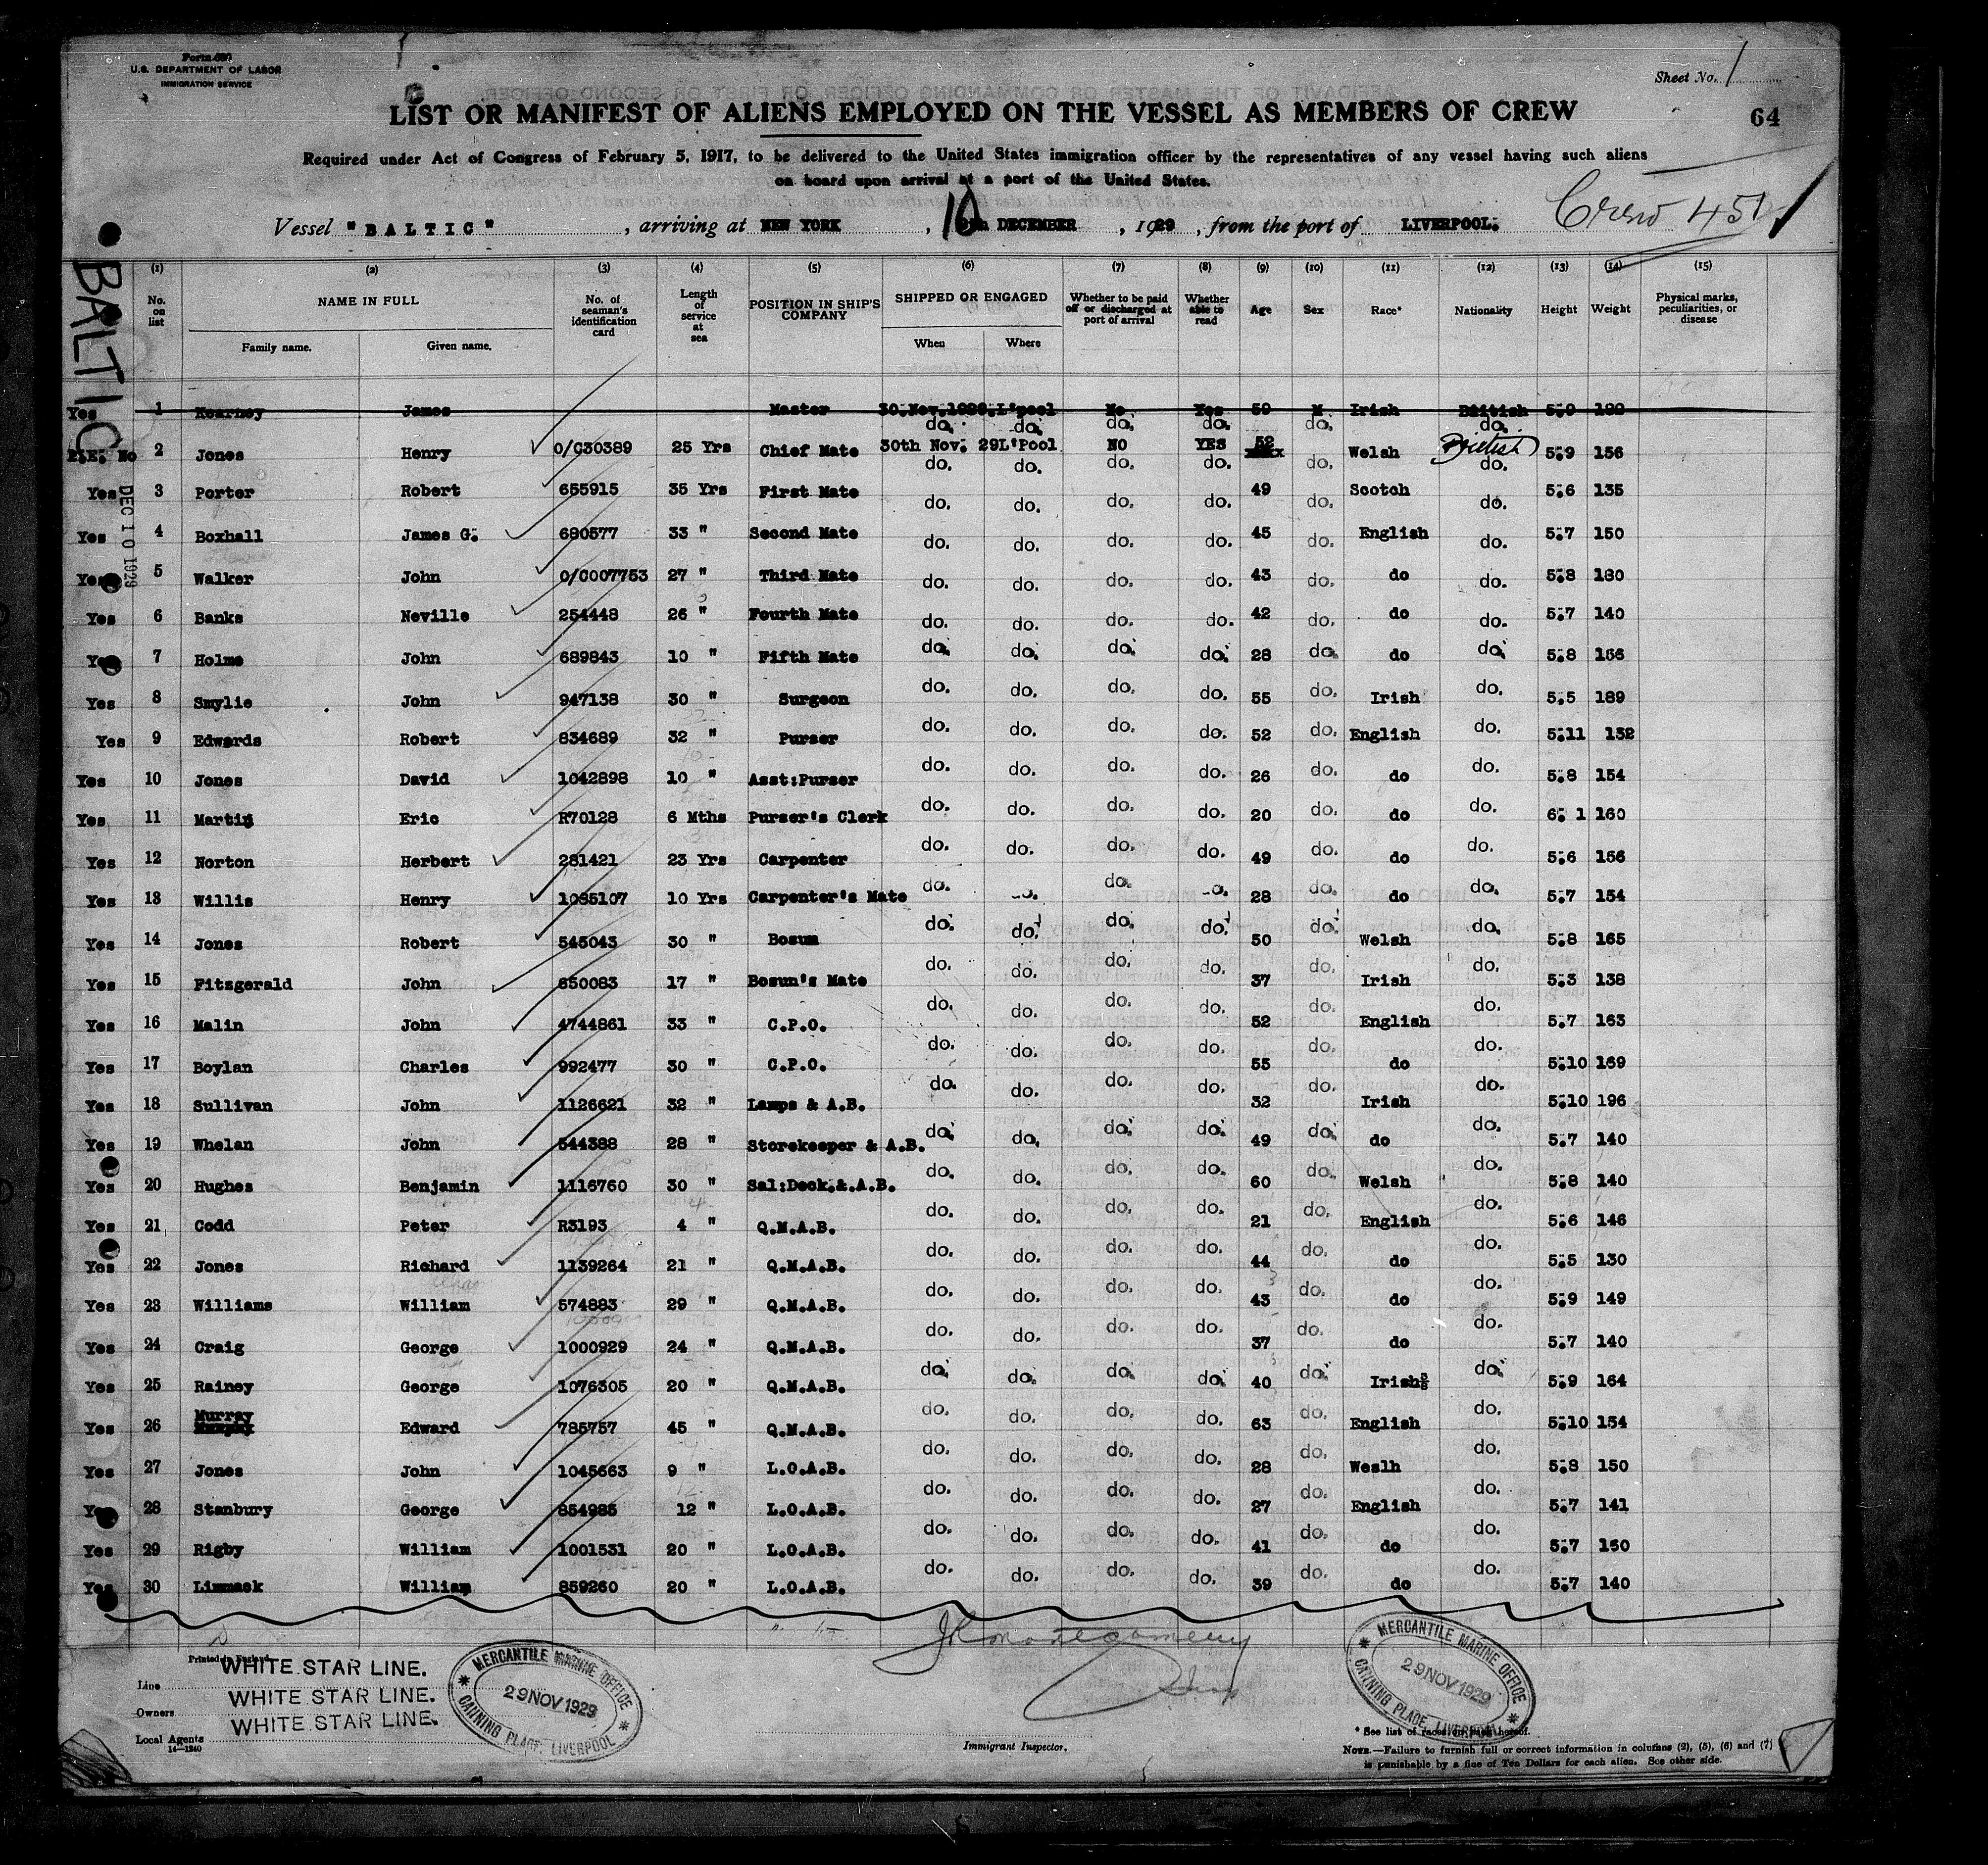 Form 680
U.S. DEPARTMENT OF LABOR
IMMIGRATION SERVICE
Sheet No. 1
LIST OR MANIFEST OF ALIENS EMPLOYED ON THE VESSEL AS MEMBERS OF CREW
64
Required under Act of Congress of February 5, 1917, to be delivered to the United States immigration officer by the representatives of any vessel having such aliens
on board upon arrival at a port of the United States.
Vessel "BALTIC", arriving at NEW YORK, 10 DECEMBER, 1929, from the port of LIVERPOOL. Crew 451
BALTIC
DEC 10 1929
(1) (2) (3) (4) (5) (6) (7) (8) (9) (10) (11) (12) (13) (14) (15)
No. on list NAME IN FULL No. of seaman's identification card Length of service at sea POSITION IN SHIP'S COMPANY SHIPPED OR ENGAGED Whether to be paid off or discharged at port of arrival Whether able to read Age Sex Race* Nationality Height Weight Physical marks, peculiarities, or disease
Family name. Given name. When Where
Yes 1 Kearney James Master 30.Nov.1929.L'pool No Yes 59 M Irish British 5.9 192
do. do. do. do. do. do.
P.E. No 2 Jones Henry 0/C30389 25 Yrs Chief Mate 30th Nov. 29 L'Pool NO YES 52 Welsh British 5.9 156
Yes 3 Porter Robert 655915 35 Yrs First Mate do. do. do. do. 49 do. Scotch do. 5.6 135
Yes 4 Boxhall James G. 680577 33 " Second Mate do. do. do. do. 45 do. English do. 5.7 150
Yes 5 Walker John 0/C007753 27 " Third Mate do. do. do. do. 43 do. do do. 5.8 180
Yes 6 Banks Neville 254448 26 " Fourth Mate do. do. do. do. 42 do. do do. 5.7 140
Yes 7 Holme John 689843 10 " Fifth Mate do. do. do. do. 28 do. do do. 5.8 166
Yes 8 Smylie John 947138 30 " Surgeon do. do. do. do. 55 do. Irish do. 5.5 189
Yes 9 Edwards Robert 834689 32 " Purser do. do. do. do. 52 do. English do. 5.11 152
Yes 10 Jones David 1042898 10 " Asst:Purser do. do. do. do. 26 do. do do. 5.8 154
Yes 11 Martin Eric R70128 6 Mths Purser's Clerk do. do. do. do. 20 do. do do. 6. 1 160
Yes 12 Norton Herbert 281421 23 Yrs Carpenter do. do. do. do. 49 do. do do. 5.6 156
Yes 13 Willis Henry 1085107 10 Yrs Carpenter's Mate do. do. do. do. 28 do. do do. 5.7 154
Yes 14 Jones Robert 545043 30 " Bosun do. do. do. do. 50 do. Welsh do. 5.8 165
Yes 15 Fitzgerald John 650083 17 " Bosun's Mate do. do. do. do. 37 do. Irish do. 5.3 138
Yes 16 Malin John 4744861 33 " C.P.O. do. do. do. do. 52 do. English do. 5.7 163
Yes 17 Boylan Charles 992477 30 " C.P.O. do. do. do. do. 55 do. do do. 5.10 169
Yes 18 Sullivan John 1126621 32 " Lamps & A.B. do. do. do. do. 32 do. Irish do. 5.10 196
Yes 19 Whelan John 544388 28 " Storekeeper & A.B. do. do. do. do. 49 do. do do. 5.7 140
Yes 20 Hughes Benjamin 1116760 30 " Sal:Deck.&.A.B. do. do. do. do. 60 do. Welsh do. 5.8 140
Yes 21 Codd Peter R3193 4 " Q.M.A.B. do. do. do. do. 21 do. English do. 5.6 146
Yes 22 Jones Richard 1139264 21 " Q.M.A.B. do. do. do. do. 44 do. do do. 5.5 130
Yes 23 Williams William 574883 29 " Q.M.A.B. do. do. do. do. 43 do. do do. 5.9 149
Yes 24 Craig George 1000929 24 " Q.M.A.B. do. do. do. do. 37 do. do do. 5.7 140
Yes 25 Rainey George 1076305 20 " Q.M.A.B. do. do. do. do. 40 do. Irish do. 5.9 164
Yes 26 Murray Edward 785757 45 " Q.M.A.B. do. do. do. do. 63 do. English do. 5.10 154
Yes 27 Jones John 1045663 9 " L.O.A.B. do. do. do. do. 28 do. Weslh do. 5.8 150
Yes 28 Stanbury George 854985 12 " L.O.A.B. do. do. do. do. 27 do. English do. 5.7 141
Yes 29 Rigby William 1001531 20 " L.O.A.B. do. do. do. do. 41 do. do do. 5.7 150
Yes 30 Limmack William 859260 20 " L.O.A.B. do. do. do. do. 39 do. do do. 5.7 140
Printed in England
Line WHITE STAR LINE.
Owners WHITE STAR LINE.
Local Agents WHITE STAR LINE.
14—1240
MERCANTILE MARINE OFFICE
29 NOV 1929
CANNING PLACE, LIVERPOOL
Immigrant Inspector.
MERCANTILE MARINE OFFICE
29 NOV 1929
CANNING PLACE, LIVERPOOL
* See list of races on back hereof.
NOTE.—Failure to furnish full or correct information in columns (2), (5), (6) and (7)
is punishable by a fine of Ten Dollars for each alien. See other side.